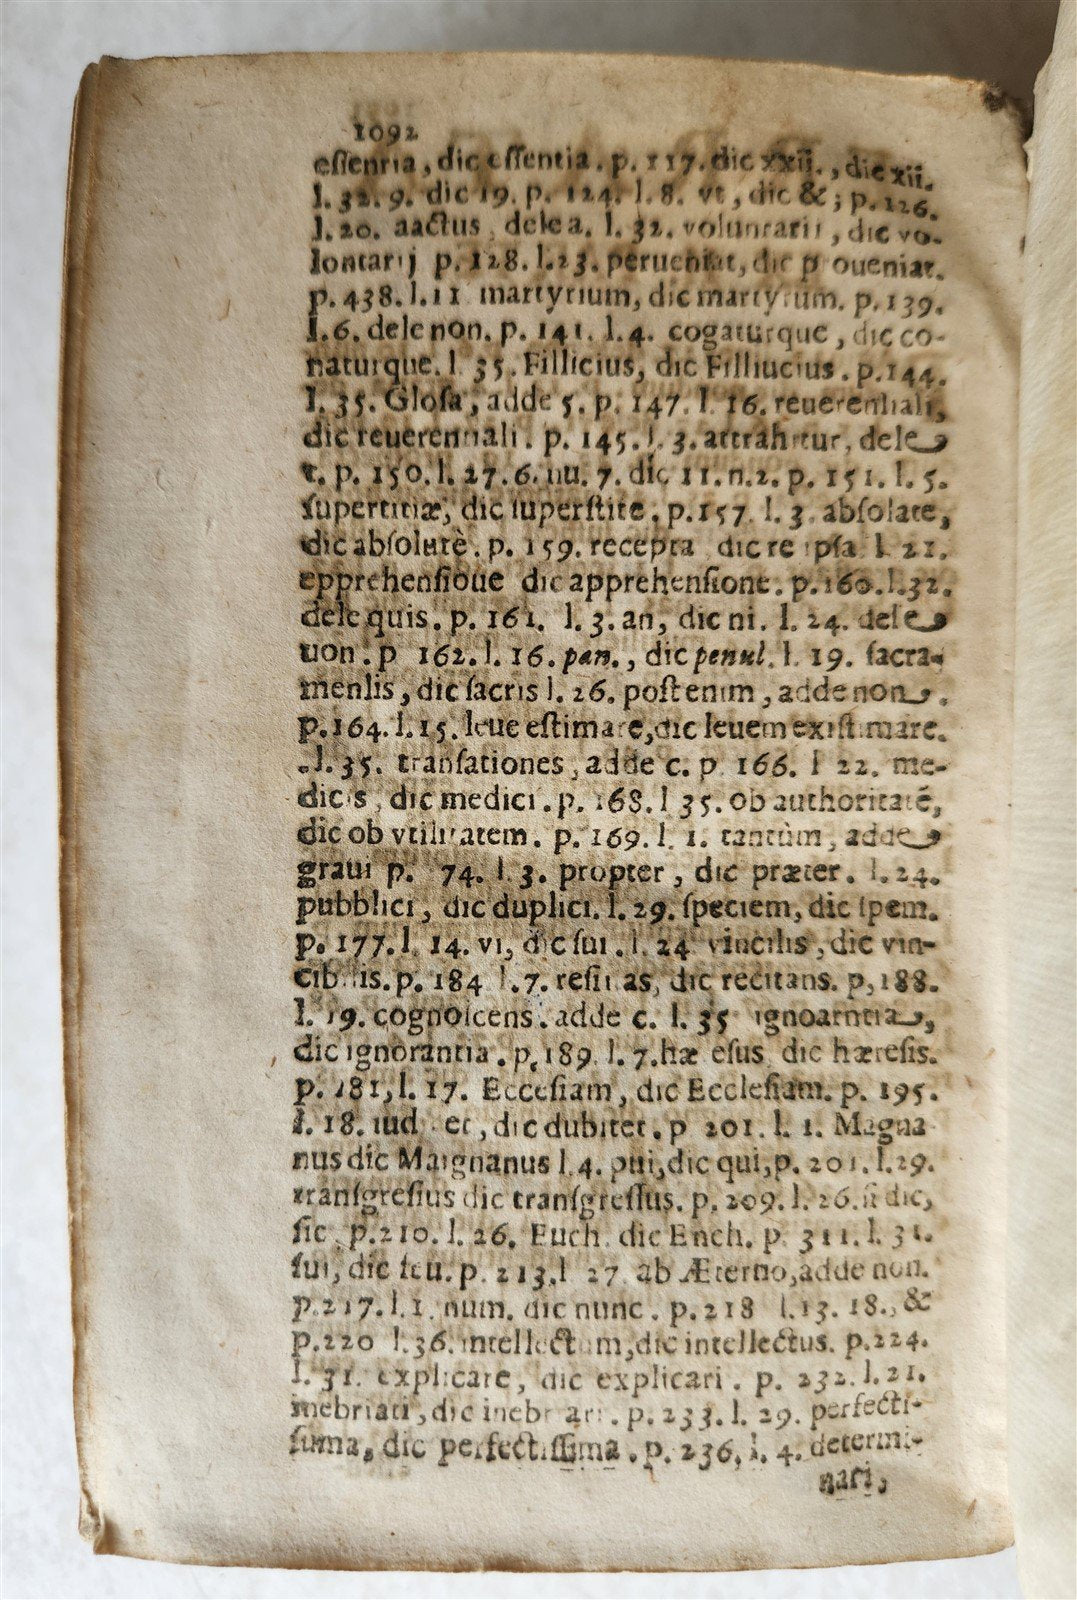 1092
essenria, dic essentia. p. 117. dic xxii., dic xii.
l. 32. 9. dic 19. p. 124. l. 8. vt, dic &; p. 126.
l. 20. aactus, dele a. l. 32. voluntarii, dic vo-
lontarij p. 128. l. 23. perueniat, dic p oueniat.
p. 438. l. 11 martyrium, dic martyrum. p. 139.
l. 6. dele non. p. 141. l. 4. cogaturque, dic co-
naturque. l. 35. Fillicius, dic Filliucius. p. 144.
l. 35. Glosa, adde 5. p. 147. l. 16. reuerenliali,
dic reuerentiali. p. 145. l. 3. attrahitur, dele
t. p. 150. l. 27. 6. nu. 7. dic 11. n. 2. p. 151. l. 5.
supertitiæ, dic superstite. p. 157. l. 3. absolate,
dic absolutè. p. 159. recepta dic re ipsa l. 21.
epprehensioue dic apprehensione. p. 160. l. 32.
dele quis. p. 161. l. 3. an, dic ni. l. 24. dele
uon. p 162. l. 16. pan., dic penul. l. 19. sacra-
menlis, dic sacris l. 26. post enim, adde non.
p. 164. l. 15. leue estimare, dic leuem existimare.
l. 35. transationes, adde c. p. 166. l 22. me-
dicis, dic medici. p. 168. l 35. ob authoritatē,
dic ob vtilitatem. p. 169. l. 1. tantùm, adde
graui p. 74. l. 3. propter, dic præter. l. 24.
pubblici, dic duplici. l. 29. speciem, dic spem.
p. 177. l. 14. vi, dic sui. l. 24 vincilis, dic vin-
cibilis. p. 184 l. 7. dic recitans. p, 188.
l. 19. cognoscens. adde c. l. 35 ignoarntia,
dic ignorantia. p. 189. l. 7. hæ esus dic hæresis.
p. 181, l. 17. Eccesiam, dic Ecclesiam. p. 195.
l. 18. dic dubitet. p 201. l. 1. Magna
nus dic Maignanus l. 4. pui, dic qui, p. 201. l. 29.
transgresius dic transgressus. p. 209. l. 26. si dic,
sic. p. 210. l. 26. Euch. dic Ench. p. 311. l. 31.
sui, dic seu. p. 213. l 27. ab Æterno, adde non.
p. 217. l. 1. num. dic nunc. p. 218 l. 13. 18., &
p. 220 l. 36. intellectum, dic intellectus. p. 224.
l. 31. explicare, dic explicari. p. 232. l. 21.
inebriati, dic p. 233. l. 29. perfecti-
suma, dic perfectissima. p. 236, l. 4. determi-
nari,